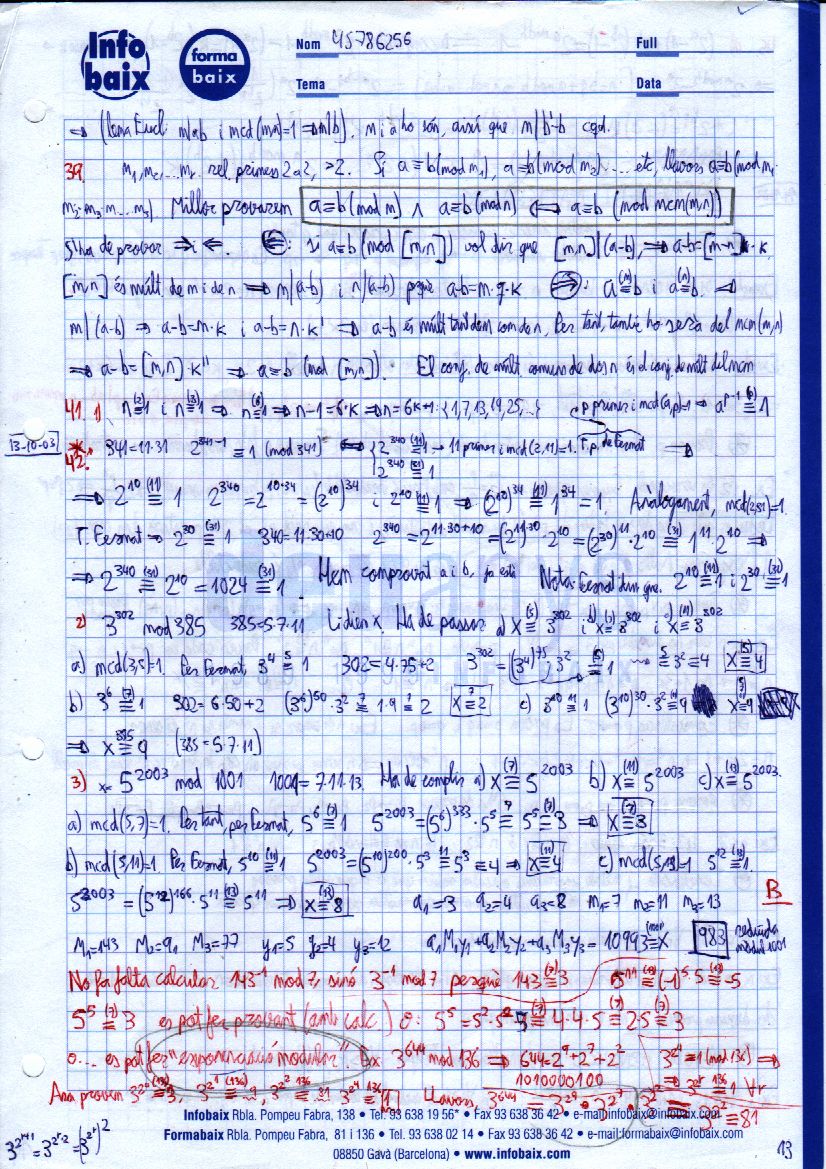 Info baix
forma baix
Nom 45786256 Full
Tema Data
⇒ (Lema Eucl: m|ab i mcd(m,a)=1 ⇒ m|b). m i a ho són, així que m|b'-b cqd.
39. m₁, m₂, ... mᵣ rel. primers 2 a 2, >2. Si a≡b(mod m₁), a≡b(mod m₂)... etc, llavors a≡b(mod m₁·
m₂·m₃·...). Millor provarem a≡b(mod m) ∧ a≡b(mod n) ⇔ a≡b (mod mcm(m,n))
S'ha de provar ⇒ i ⇐. ⇐: Si a≡b (mod [m,n]) vol dir que [m,n]|(a-b), ⇒ a-b=[m,n]·k
[m,n] és múlt. de m i de n ⇒ m|(a-b) i n|(a-b) pque a-b=m·q·k ⇒: a≡(m) b i a≡(n) b.
m|(a-b) ⇒ a-b=m·k i a-b=n·k' ⇒ a-b és múlt tant de m com de n. Per tant, també ho serà del mcm(m,n)
⇒ a-b=[m,n]·k'' ⇒ a≡b (mod [m,n]). El conj. de múlt. comuns de dos n és el conj. de múlt del mcm
41. 1) n≡(2) 1 i n≡(3) 1 ⇒ n≡(6) 1 ⇒ n-1=6·k ⇒ n=6k+1: {1,7,13,19,25,...} p primer i mcd(a,p)=1 ⇒ a^(p-1) ≡(p) 1
13-10-03 * 42. 341=11·31 2^(341-1) ≡ 1 (mod 341) ⇔ { 2^340 ≡(11) 1 → 11 primer i mcd(2,11)=1. T.p. de Fermat ⇒
2^340 ≡(31) 1
⇒ 2^10 ≡(11) 1 2^340=2^(10·34)=(2^10)^34 i 2^10 ≡(11) 1 ⇒ (2^10)^34 ≡(11) 1^34=1. Anàlogament, mcd(2,31)=1.
T. Fermat ⇒ 2^30 ≡(31) 1 340=11·30+10 2^340=2^(11·30+10)=(2^(11·30))·2^10=(2^30)^11·2^10 ≡(31) 1^11·2^10 ⇒
⇒ 2^340 ≡(31) 2^10=1024 ≡(31) 1. Hem comprovat a i b, ja està Nota: Fermat diu que. 2^10 ≡(11) 1 i 2^30 ≡(31) 1
2) 3^302 mod 385 385=5·7·11 Li dien x. Ha de passar a) x≡(5) 3^302 i b) x≡(7) 3^302 i x≡(11) 3^302
a) mcd(3,5)=1. Per Fermat, 3^4 ≡5 1 302=4·75+2 3^302=(3^4)^75·3^2 ≡(5) 1 ≡5 3^2≡4 x≡(5) 4
b) 3^6 ≡(7) 1 302=6·50+2 (3^6)^50·3^2 ≡7 1·9 ≡7 2 x≡7 2 c) 3^10 ≡11 1 (3^10)^30·3^2 ≡(11) 9 x≡9
⇒ x ≡385 9 (385=5·7·11)
3) x=5^2003 mod 1001 1001=7·11·13. Ha de complir a) x≡(7) 5^2003 b) x≡(11) 5^2003 c) x≡(13) 5^2003.
a) mcd(5,7)=1. Per tant, per Fermat, 5^6 ≡(7) 1 5^2003=(5^6)^333·5^5 ≡7 5^5 ≡(7) 3 ⇒ x≡(7) 3
b) mcd(5,11)=1 Per Fermat, 5^10 ≡(11) 1 5^2003=(5^10)^200·5^3 ≡11 5^3≡4 ⇒ x≡(11) 4 c) mcd(5,13)=1 5^12 ≡(13) 1.
5^2003=(5^12)^166·5^11 ≡(13) 5^11 ⇒ x≡(13) 8 a₁=3 a₂=4 a₃=8 m₁=7 m₂=11 m₃=13 B
M₁=143 M₂=91 M₃=77 y₁=5 y₂=4 y₃=12 a₁M₁y₁+a₂M₂y₂+a₃M₃y₃=10993 ≡(1001) x 983 reduïda mòdul 1001
No fa falta calcular 143⁻¹ mod 7, sinó 3⁻¹ mod 7 perquè 143 ≡(7) 3 5^11 ≡(13) (-1)^5·5 ≡(13) -5
5^5 ≡(7) 3 es pot fer provant (amb calc) o: 5^5=5^2·5^2·5 ≡(7) 4·4·5 ≡(7) 2·5 ≡(7) 3
o... es pot fer "exponenciació modular". Ex 3^644 mod 136 ⇒ 644=2^9+2^7+2^2 3^(2^4)≡1 (mod 136) ⇒
1010000100 ⇒ 3^(2^r) ≡136 1 ∀r
Ara provem 3^(2^0) ≡(136) 3, 3^(2^1) ≡(136) 9, 3^(2^2) ≡136 81 3^(2^4) ≡136 1 Llavors, 3^644 = 3^(2^9)·3^(2^7)·3^(2^2) ≡ 3^(2^2) ≡ 81
Infobaix Rbla. Pompeu Fabra, 138 • Tel. 93 638 19 56* • Fax 93 638 36 42 • e-mail:infobaix@infobaix.com
Formabaix Rbla. Pompeu Fabra, 81 i 136 • Tel. 93 638 02 14 • Fax 93 638 36 42 • e-mail:formabaix@infobaix.com
08850 Gavà (Barcelona) • www.infobaix.com
3^(2^(r+1))=3^(2^r·2)=(3^(2^r))^2
13